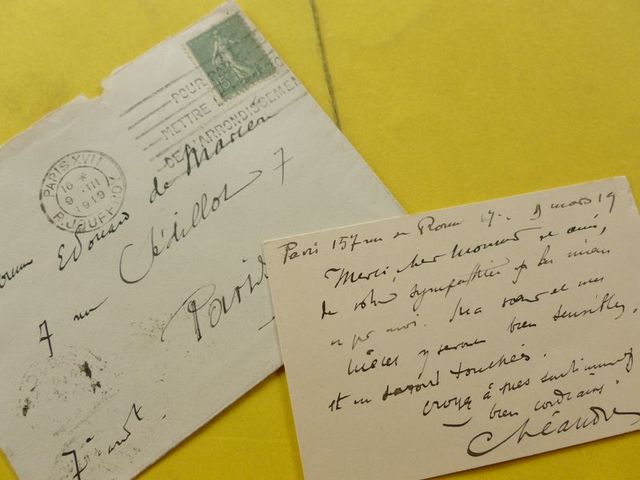 POUR
METTRE
DE L'ARRONDISSEMENT
PARIS XVII
16 *
9 III
1919
R. JOUFFROY
Edouard de Marien
7 rue Sédillot 7
Paris
7e arrt.
Paris 157 rue de Rome 17. 9 mars 19
Merci, cher Monsieur et ami,
de votre sympathie pour les miens
et pr moi. Ma sœur et mes
nièces y seront bien sensibles,
et en seront touchées.
Croyez à mes sentiments
bien cordiaux.